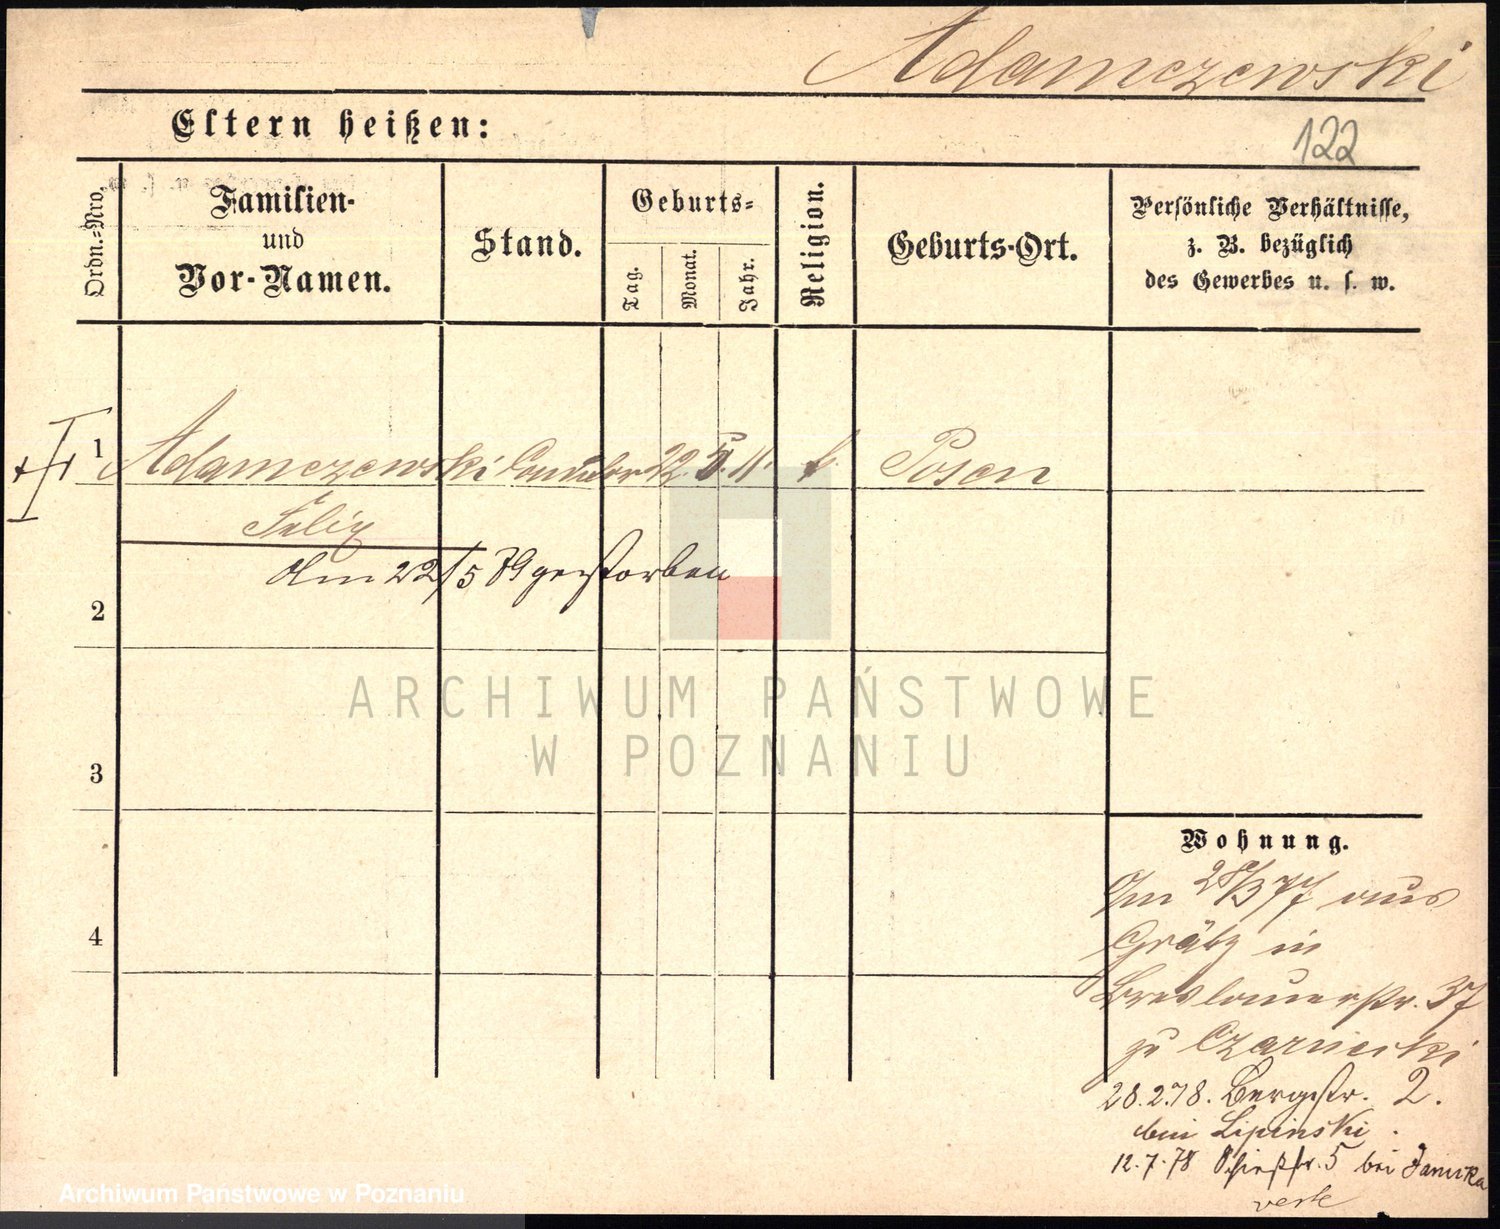 Adamczewski
Eltern heißen:
122
Ordn.-Nro,
Familien-
und
Vor-Namen.
Stand.
Geburts-
Tag.
Monat.
Jahr.
Religion.
Geburts-Ort.
Persönliche Verhältnisse,
z. B. bezüglich
des Gewerbes u. s. w.
1
Adamczewski 22. 5. 11. k. Posen
Felix
am 22/5 79 gestorben
2
3
4
ARCHIWUM PAŃSTWOWE
W POZNANIU
Wohnung.
Am 28/3 77 aus
Grätz in
Breslauerstr. 37
zu Czarnecki
28.2.78. Bergstr. 2.
bei Lipinski.
12.7.78 Schießstr. 5 bei
Archiwum Państwowe w Poznaniu